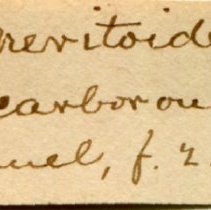 revitoide
carborou
uel, f. 2.